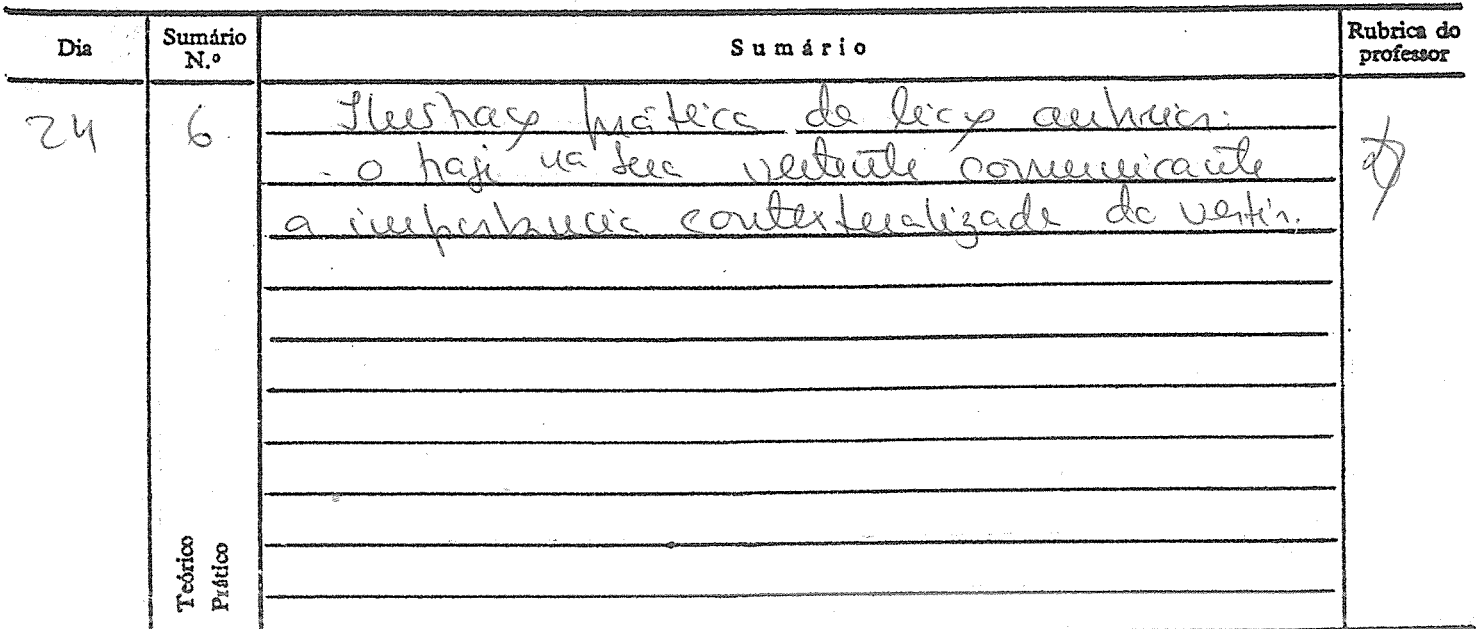 Dia Sumário N.º Sumário Rubrica do professor
24 6. Ilustração prática da lição anterior:
- o traje na sua vertente comunicante
a importância contextualizada do vestir.
Teórico
Prático